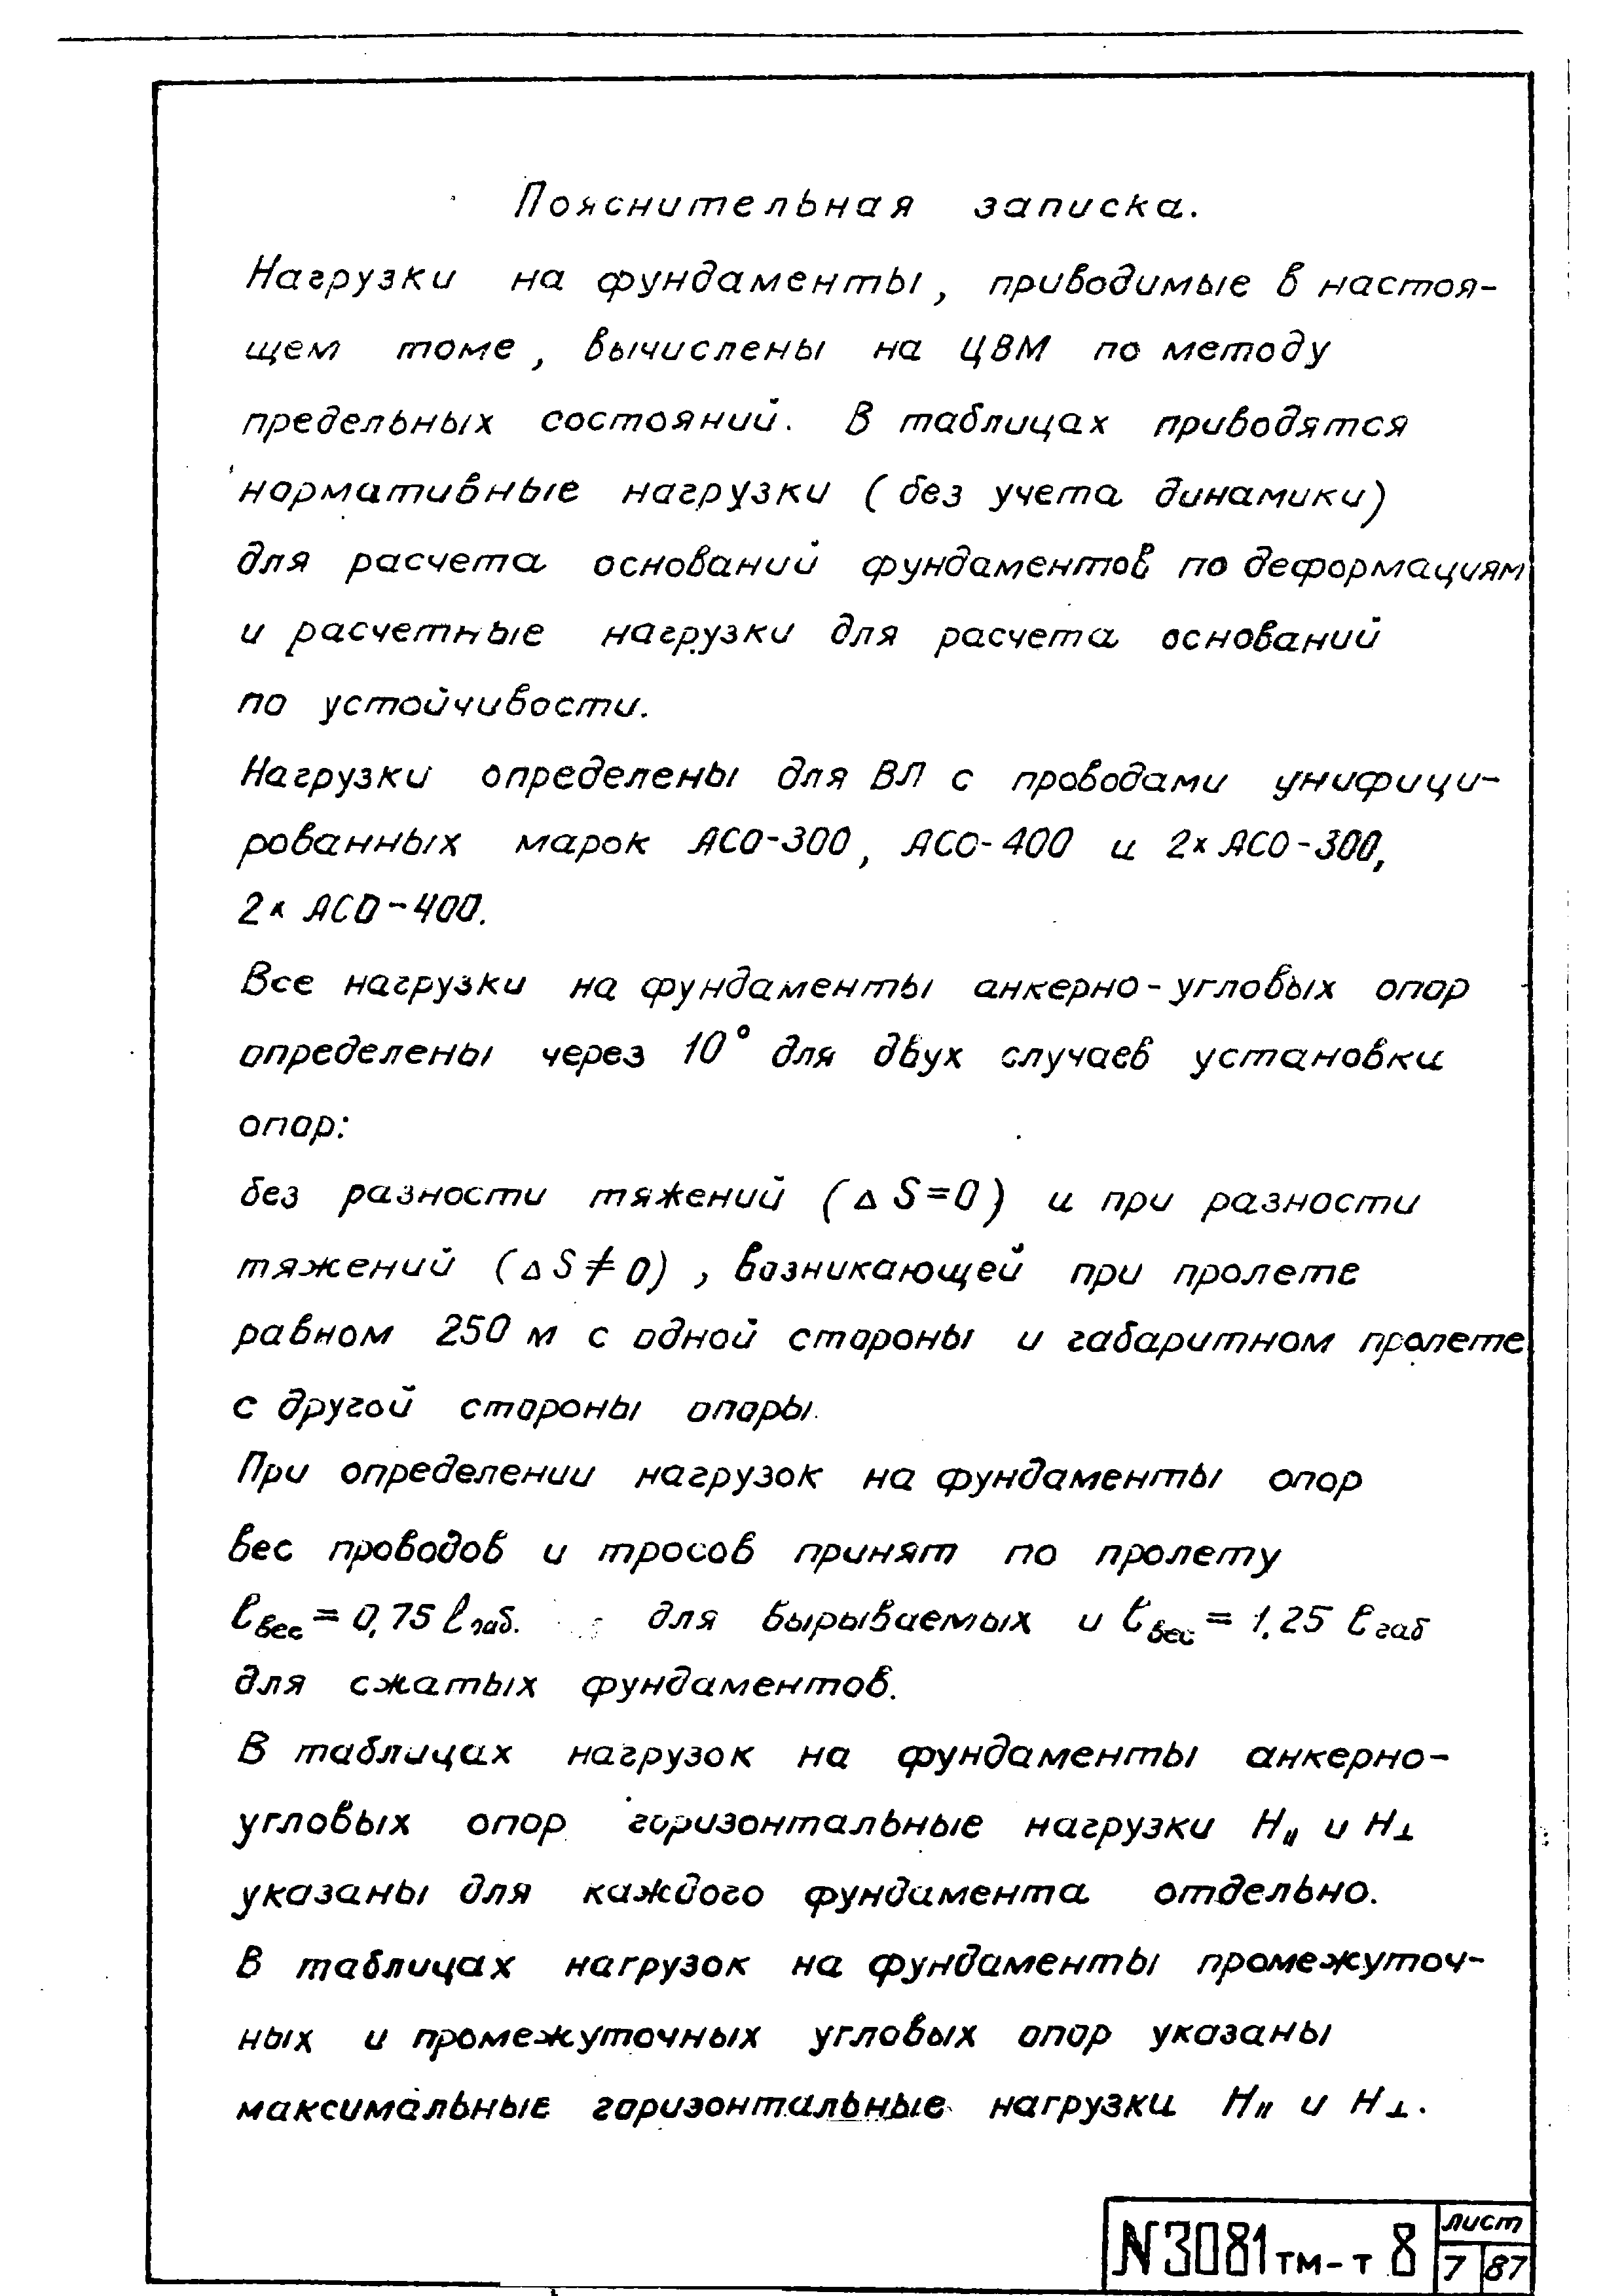 Пояснительная записка.
Нагрузки на фундаменты, приводимые в настоя-
щем томе, вычислены на ЦВМ по методу
предельных состояний. В таблицах приводятся
нормативные нагрузки (без учета динамики)
для расчета оснований фундаментов по деформациям
и расчетные нагрузки для расчета оснований
по устойчивости.
Нагрузки определены для ВЛ с проводами унифици-
рованных марок АСО-300, АСО-400 и 2×АСО-300,
2×АСО-400.
Все нагрузки на фундаменты анкерно-угловых опор
определены через 10° для двух случаев установки
опор:
без разности тяжений (ΔS=0) и при разности
тяжений (ΔS≠0), возникающей при пролете
равном 250 м с одной стороны и габаритном пролете
с другой стороны опоры.
При определении нагрузок на фундаменты опор
вес проводов и тросов принят по пролету
ℓвес = 0,75 ℓгаб. для вырываемых и ℓвес = 1,25 ℓгаб
для сжатых фундаментов.
В таблицах нагрузок на фундаменты анкерно-
угловых опор горизонтальные нагрузки H∥ и H⊥
указаны для каждого фундамента отдельно.
В таблицах нагрузок на фундаменты промежуточ-
ных и промежуточных угловых опор указаны
максимальные горизонтальные нагрузки H∥ и H⊥.
N3081тм-т 8
лист
7 87